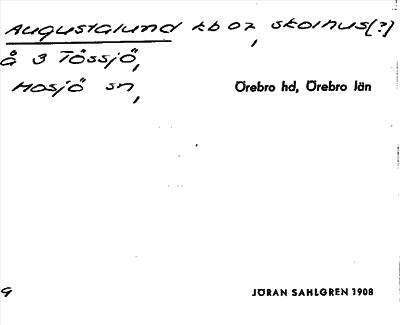 Augustalund tb oz, skolhus(?)
å 3 Tössjö,
Mosjö sn,
Örebro hd, Örebro län
9
JÖRAN SAHLGREN 1908